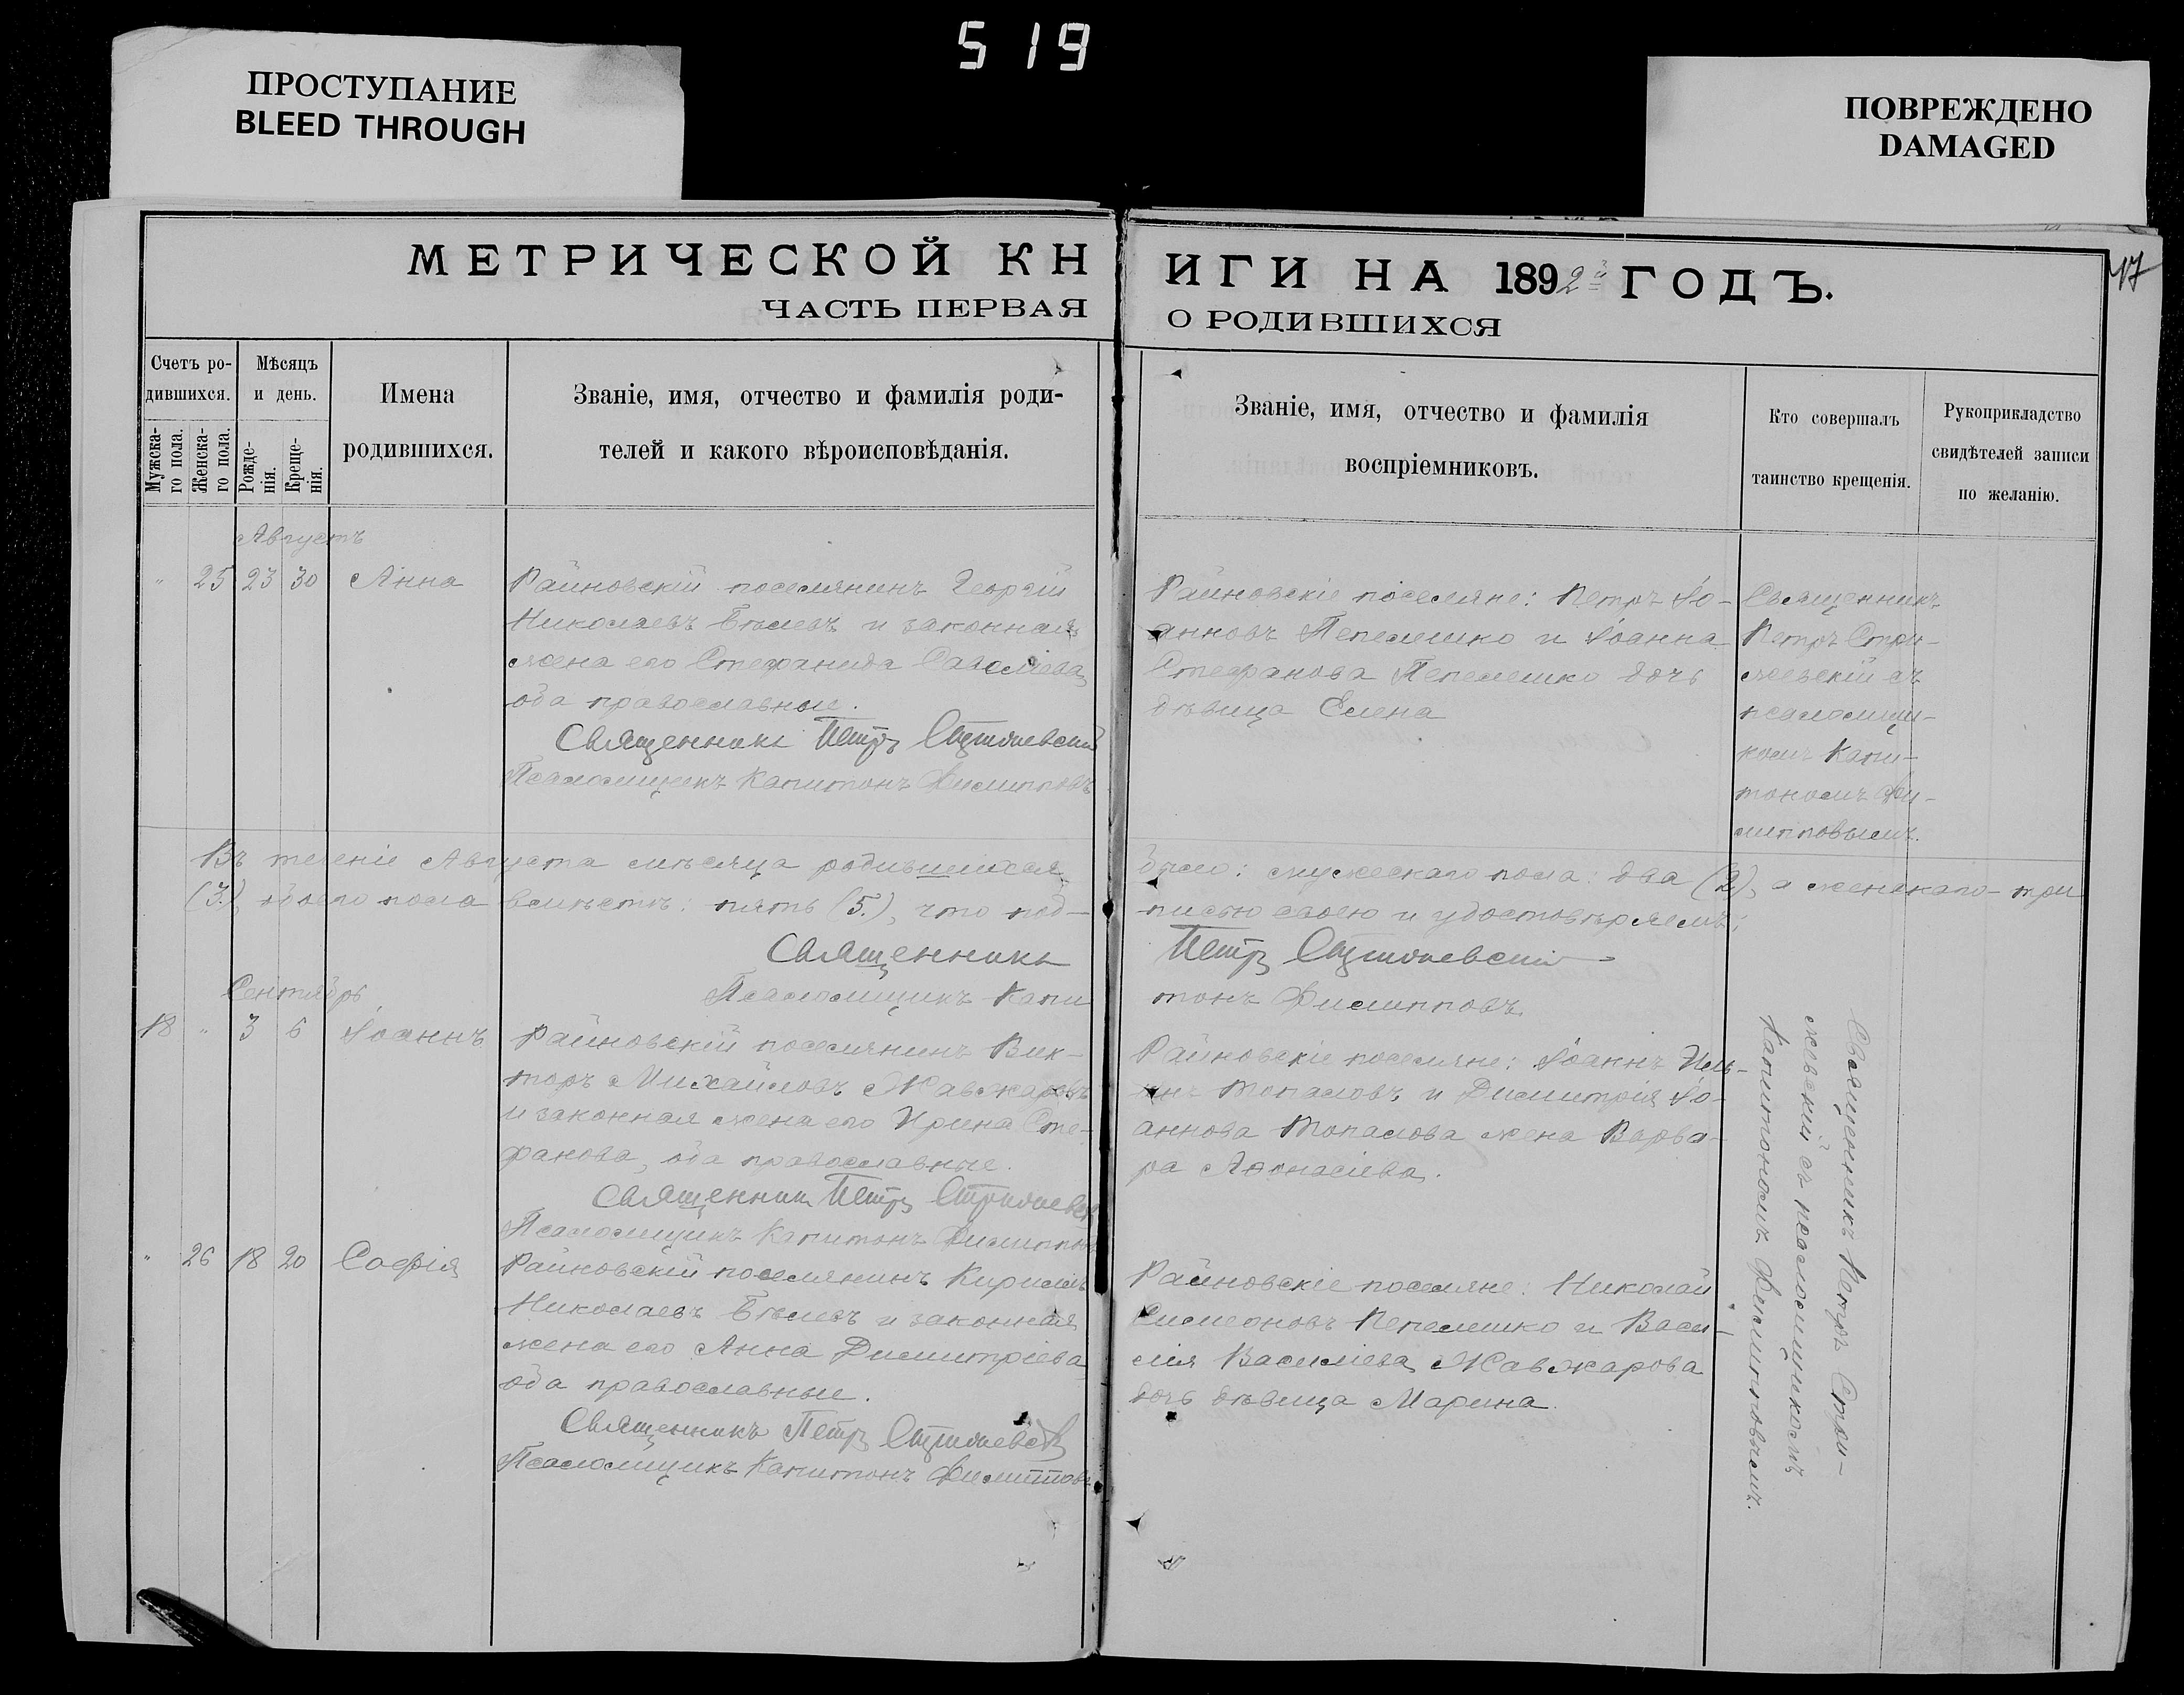 519
ПРОСТУПАНИЕ
BLEED THROUGH
ПОВРЕЖДЕНО
DAMAGED
МЕТРИЧЕСКОЙ КН
ИГИ НА 1892й ГОДЪ.
17
ЧАСТЬ ПЕРВАЯ
О РОДИВШИХСЯ
Счетъ ро-
дившихся.
Мужска-
го пола.
Женска-
го пола.
Мѣсяцъ
и день.
Рожде-
нія.
Креще-
нія.
Имена
родившихся.
Званіе, имя, отчество и фамилія роди-
телей и какого вѣроисповѣданія.
Званіе, имя, отчество и фамилія
воспріемниковъ.
Кто совершалъ
таинство крещенія.
Рукоприкладство
свидѣтелей записи
по желанію.
Августъ
" 25 23 30 Анна
Райновскій поселянинъ Георгій
Николаевъ Бѣлевъ и законная
жена его Стефанида Савеліева,
оба православные.
Священникъ Петръ Стрижевскій
Псаломщикъ Капитонъ Филипповъ
Райновскіе поселяне: Петръ Іо-
анновъ Пепелешко и Іоанна
Стефанова Пепелешко дочь
дѣвица Елена
Священникъ
Петръ Стри-
жевскій съ
псаломщи-
комъ Капи-
тономъ Фи-
липповымъ.
Въ теченіе Августа мѣсяца родившихся
было: мужескаго пола: два (2), а женскаго - три
(3), обоего пола вмѣстѣ: пять (5.), что под-
писью своею и удостовѣряемъ:
Священникъ Петръ Стрижевскій
Псаломщикъ Капи
тонъ Филипповъ.
Сентябрь
18 " 3 6 Іоаннъ
Райновскій поселянинъ Вик-
торъ Михайловъ Жавжаровъ
и законная жена его Ирина Сте-
фанова, оба православные.
Священникъ Петръ Стрижевскій
Псаломщикъ Капитонъ Филипповъ
Райновскіе поселяне: Іоаннъ Иль-
инъ Топаловъ и Димитрія Іо-
аннова Топалова жена Варва-
ра Афонасіева.
" 26 18 20 Софія
Райновскій поселянинъ Кириллъ
Николаевъ Бѣлевъ и законная
жена его Анна Димитріева
оба православные.
Священникъ Петръ Стрижевскій
Псаломщикъ Капитонъ Филипповъ
Райновскіе поселяне: Николай
Симеоновъ Пепелешко и Васи-
лія Василіева Жавжарова
дочь дѣвица Марина.
Священникъ Петръ Стри-
жевскій съ псаломщикомъ
Капитономъ Филипповымъ.